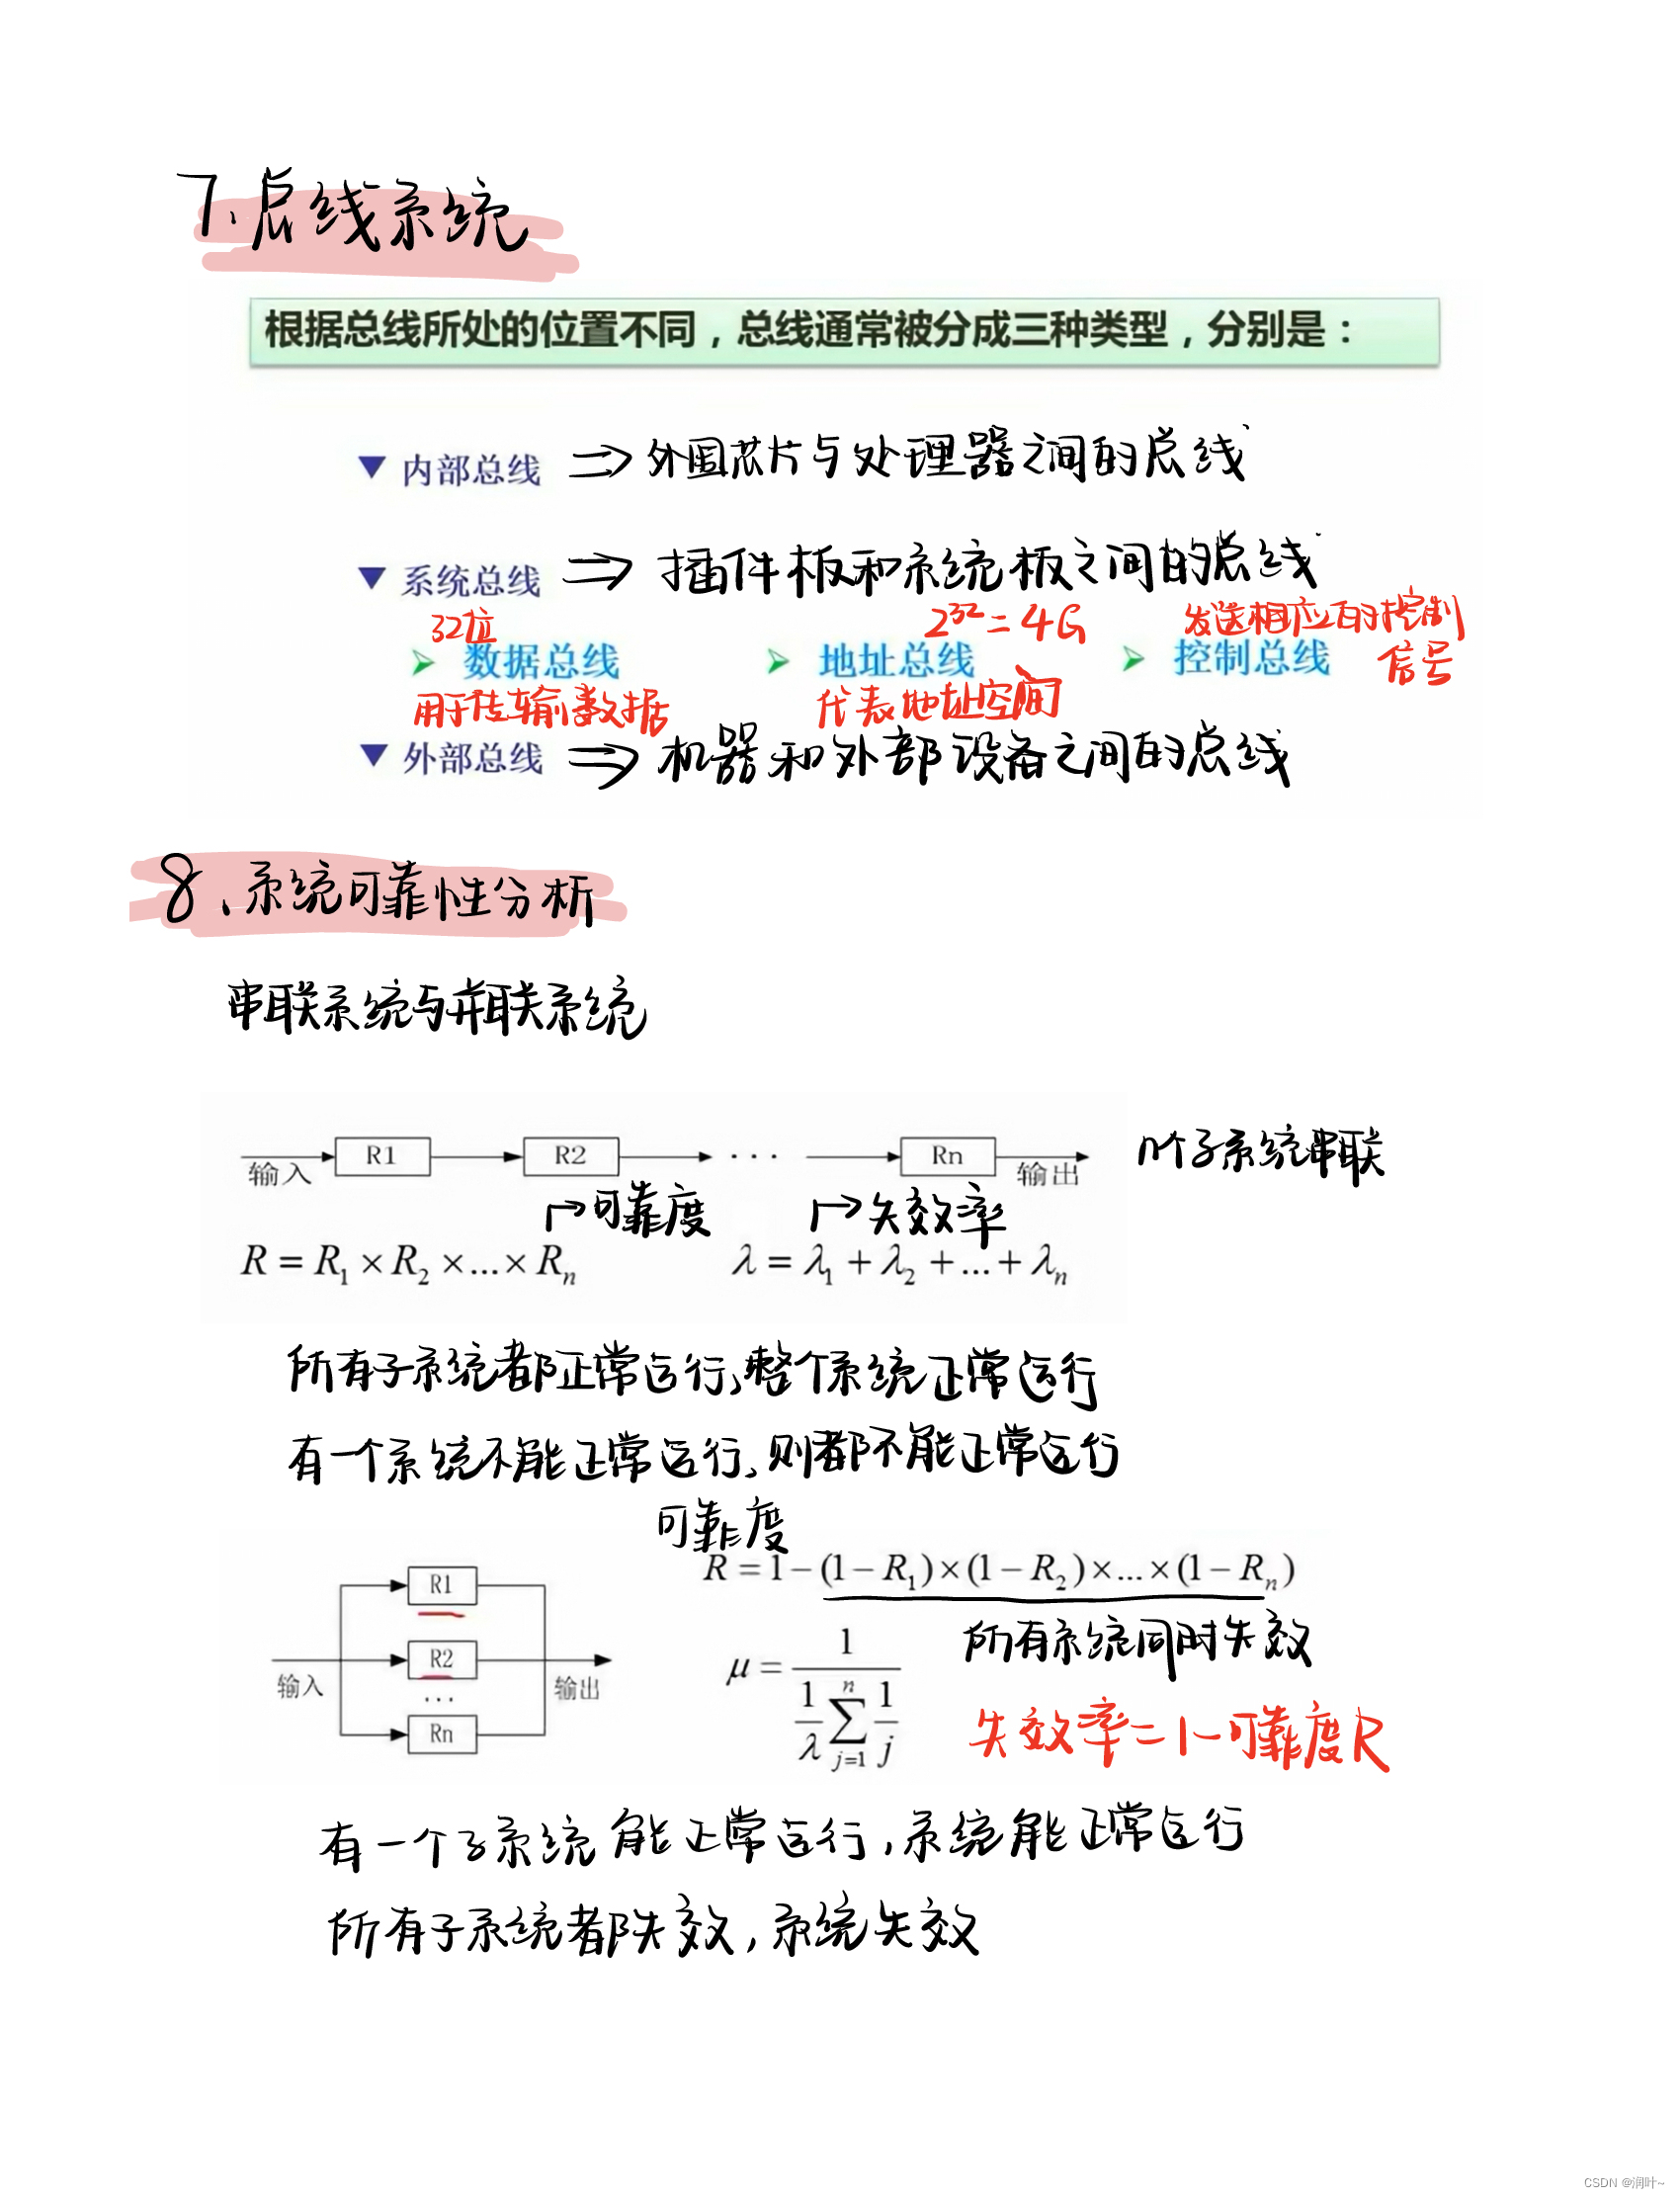 7、总线系统
根据总线所处的位置不同，总线通常被分成三种类型，分别是：
▼ 内部总线 ⇒ 外围芯片与处理器之间的总线
▼ 系统总线 ⇒ 插件板和系统板之间的总线
32位 2³²=4G 发送相应的控制
➢ 数据总线 ➢ 地址总线 ➢ 控制总线 信号
用于传输数据 代表地址空间
▼ 外部总线 ⇒ 机器和外部设备之间的总线
8、系统可靠性分析
串联系统与并联系统
输入 R1 R2 ··· Rn 输出 n个子系统串联
↦可靠度 ↦失效率
R = R₁ × R₂ ×...× Rₙ λ = λ₁ + λ₂ +...+ λₙ
所有子系统都正常运行,整个系统正常运行
有一个系统不能正常运行,则都不能正常运行
可靠度
R = 1 − (1 − R₁) × (1 − R₂) ×...× (1 − Rₙ)
所有系统同时失效
输入 R1 R2 ... Rn 输出
μ = 1 / ( (1/λ) ∑_{j=1}^{n} (1/j) )
失效率=1-可靠度R
有一个子系统能正常运行,系统能正常运行
所有子系统都失效,系统失效
CSDN @润叶~